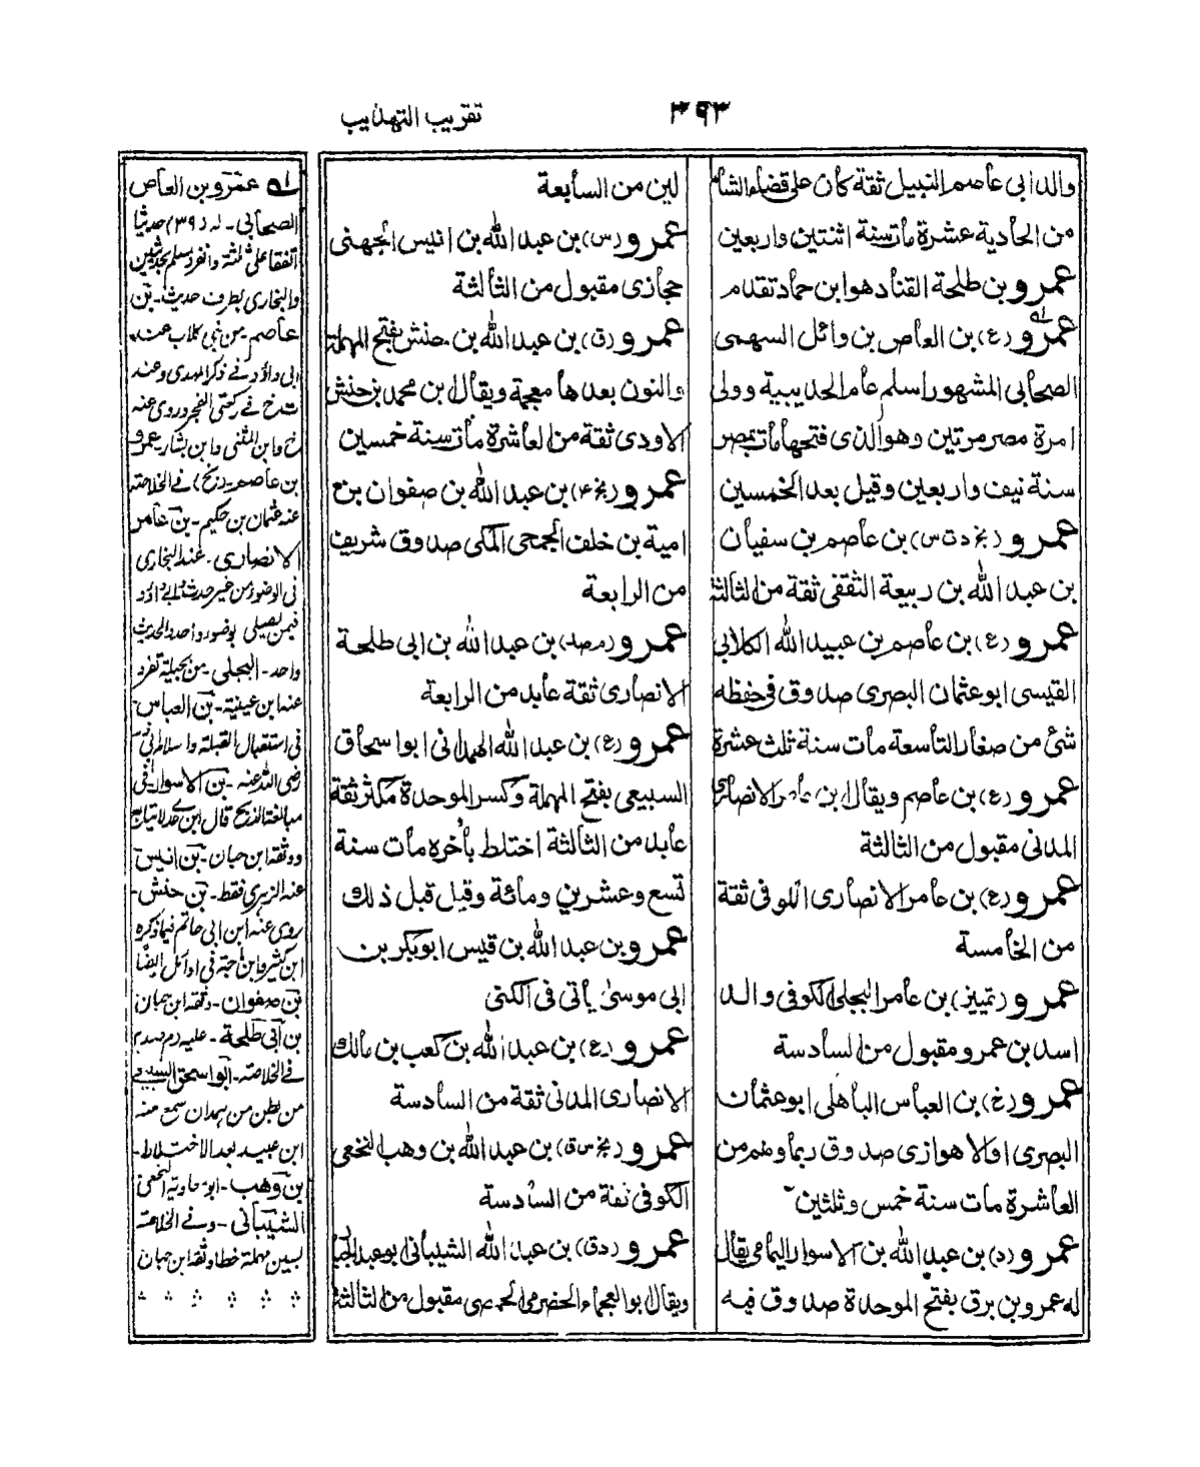 ٣٩٣
تقریب التهذیب
والد ابی عاصم النبیل ثقة کان علی قضاء الشام
من الحادیة عشرة مات سنة اثنتین واربعین
عمرو بن طلحة القناد هو ابن حماد تقدم
عمرو (ع) بن العاص بن وائل السهمی
الصحابی المشهور اسلم عام الحدیبیة وولی
امرة مصر مرتین وهو الذی فتحها مات بمصر
سنة نیف واربعین وقیل بعد الخمسین
عمرو (بخ د ت س) بن عاصم بن سفیان
بن عبد الله بن ربیعة الثقفی ثقة من الثالثة
عمرو (ع) بن عاصم بن عبید الله الکلابی
القیسی ابو عثمان البصری صدوق فی حفظه
شئ من صغار التاسعة مات سنة ثلث عشرة
عمرو (ع) بن عاصم ویقال ابن عامر الانصاری
المدنی مقبول من الثالثة
عمرو (ع) بن عامر الانصاری الکوفی ثقة
من الخامسة
عمرو (تمییز) بن عامر البجلی الکوفی والد
اسد بن عمرو مقبول من السادسة
عمرو (خ) بن العباس الباهلی ابو عثمان
البصری او الاهوازی صدوق ربما وهم من
العاشرة مات سنة خمس وثلثین
عمرو (د) بن عبد الله بن الاسوار الیمامی یقال
له عمرو بن برق بفتح الموحدة صدوق فیه
لین من السابعة
عمرو (س) بن عبد الله بن انیس الجهنی
حجازی مقبول من الثالثة
عمرو (ق) بن عبد الله بن حنش بفتح المهملة
والنون بعدها معجمة ویقال بن محمد بن حنش
الاودی ثقة من العاشرة مات سنة خمسین
عمرو (بخ ٤) بن عبد الله بن صفوان بن
امیة بن خلف الجمحی المکی صدوق شریف
من الرابعة
عمرو (م صد) بن عبد الله بن ابی طلحة
الانصاری ثقة عابد من الرابعة
عمرو (ع) بن عبد الله الهمدانی ابو اسحاق
السبیعی بفتح المهملة وکسر الموحدة مکثر ثقة
عابد من الثالثة اختلط بأخره مات سنة
تسع وعشرین ومائة وقیل قبل ذلك
عمرو بن عبد الله بن قیس ابو بکر بن
ابی موسیٰ یأتی فی الکنی
عمرو (ع) بن عبد الله بن کعب بن مالك
الانصاری المدنی ثقة من السادسة
عمرو (بخ س ق) بن عبد الله بن وهب النخعی
الکوفی ثقة من السادسة
عمرو (د ق) بن عبد الله الشیبانی ابو عبد الجبار
ویقال ابو العجماء الحضرمی الحمصی مقبول من الثالثة
له عمرو بن العاص
الصحابی۔ له (٣٩) حدیثا
اتفقا علی ثلثة وانفرد مسلم بحدیثین
والبخاری بطرف حدیث۔ بن
عاصم۔ من بنی کلاب عنه
ابی داؤد فی ذکر المهدی وعند
ت خ فی رکعتی الفجر وروی عنه
خ وابن المثنی وابن بشار عمرو
بن عاصم۔ (بخ) فی الخلاصة
عنه عثمان بن حکیم۔ بن عامر
الانصاری۔ عند البخاری
فی الوضوء من غیر حدث ولابی داؤد
فیمن یصلی بوضوء واحد الحدیث
واحد۔ البجلی۔ من بجیلة تفرد
عنه ابن عیینة۔ بن العباس۔
فی استقبال القبلة واسلام ابی ذر
رضی الله عنه۔ بن الاسوار۔ فی
مبالغة الذبح قال ابن عدی لا یتابع
ووثقه ابن حبان۔ بن انیس
عنه الزهری فقط۔ بن حنش۔
روی عنه ابن ابی حاتم فیما ذکره
ابن کثیر وابن ماجة فی اوائل ایضا
بن صفوان۔ وثقه ابن حبان
بن ابی طلحة۔ علیه رم صد
فی الخلاصة۔ ابو اسحق السبیعی
من بطن من همدان سمع منه
ابن عیینة بعد الاختلاط۔
بن وهب۔ ابو معاویة النخعی
الشیبانی۔ وفی الخلاصة
بسین مهملة خطا وثقه ابن حبان